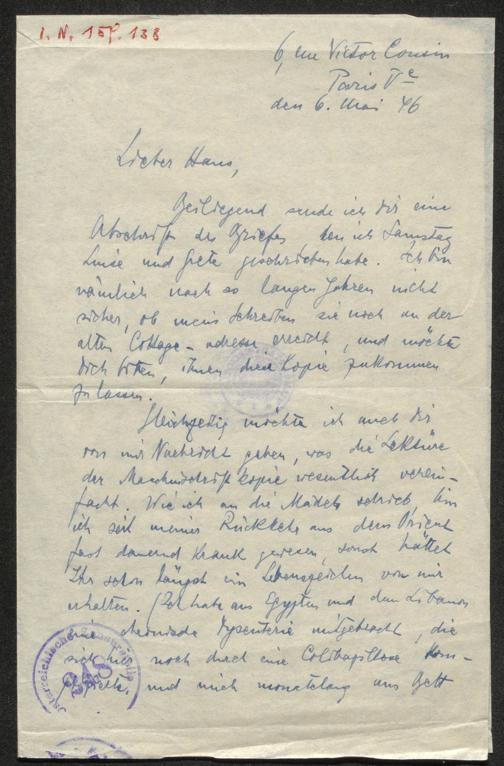 I. N. 187. 138
6, rue Victor Cousin
Paris Ve
den 6. Mai 46
Lieber Hans,
Beiliegend sende ich Dir eine
Abschrift des Briefes den ich Samstag
Luise und Grete geschrieben habe. Ich bin
nämlich nach so langen Jahren nicht
sicher, ob mein Schreiben sie noch an der
alten Cottage-adresse erreicht, und möchte
Dich bitten, ihnen diese Kopie zukommen
zu lassen.
Gleichzeitig möchte ich auch Dir
von mir Nachricht geben, was die Lektüre
der Maschinschrift kopie wesentlich verein-
facht. Wie ich an die Mädels schrieb, bin
ich seit meiner Rückkehr aus dem Orient
fast dauernd krank gewesen, sonst hättet
Ihr schon längst ein Lebenszeichen von mir
erhalten. Ich habe aus Egypten und dem Libanon
eine chronische Dysenterie mitgebracht, die
sich noch durch eine Colibazillose kom-
und mich monatelang ans Bett